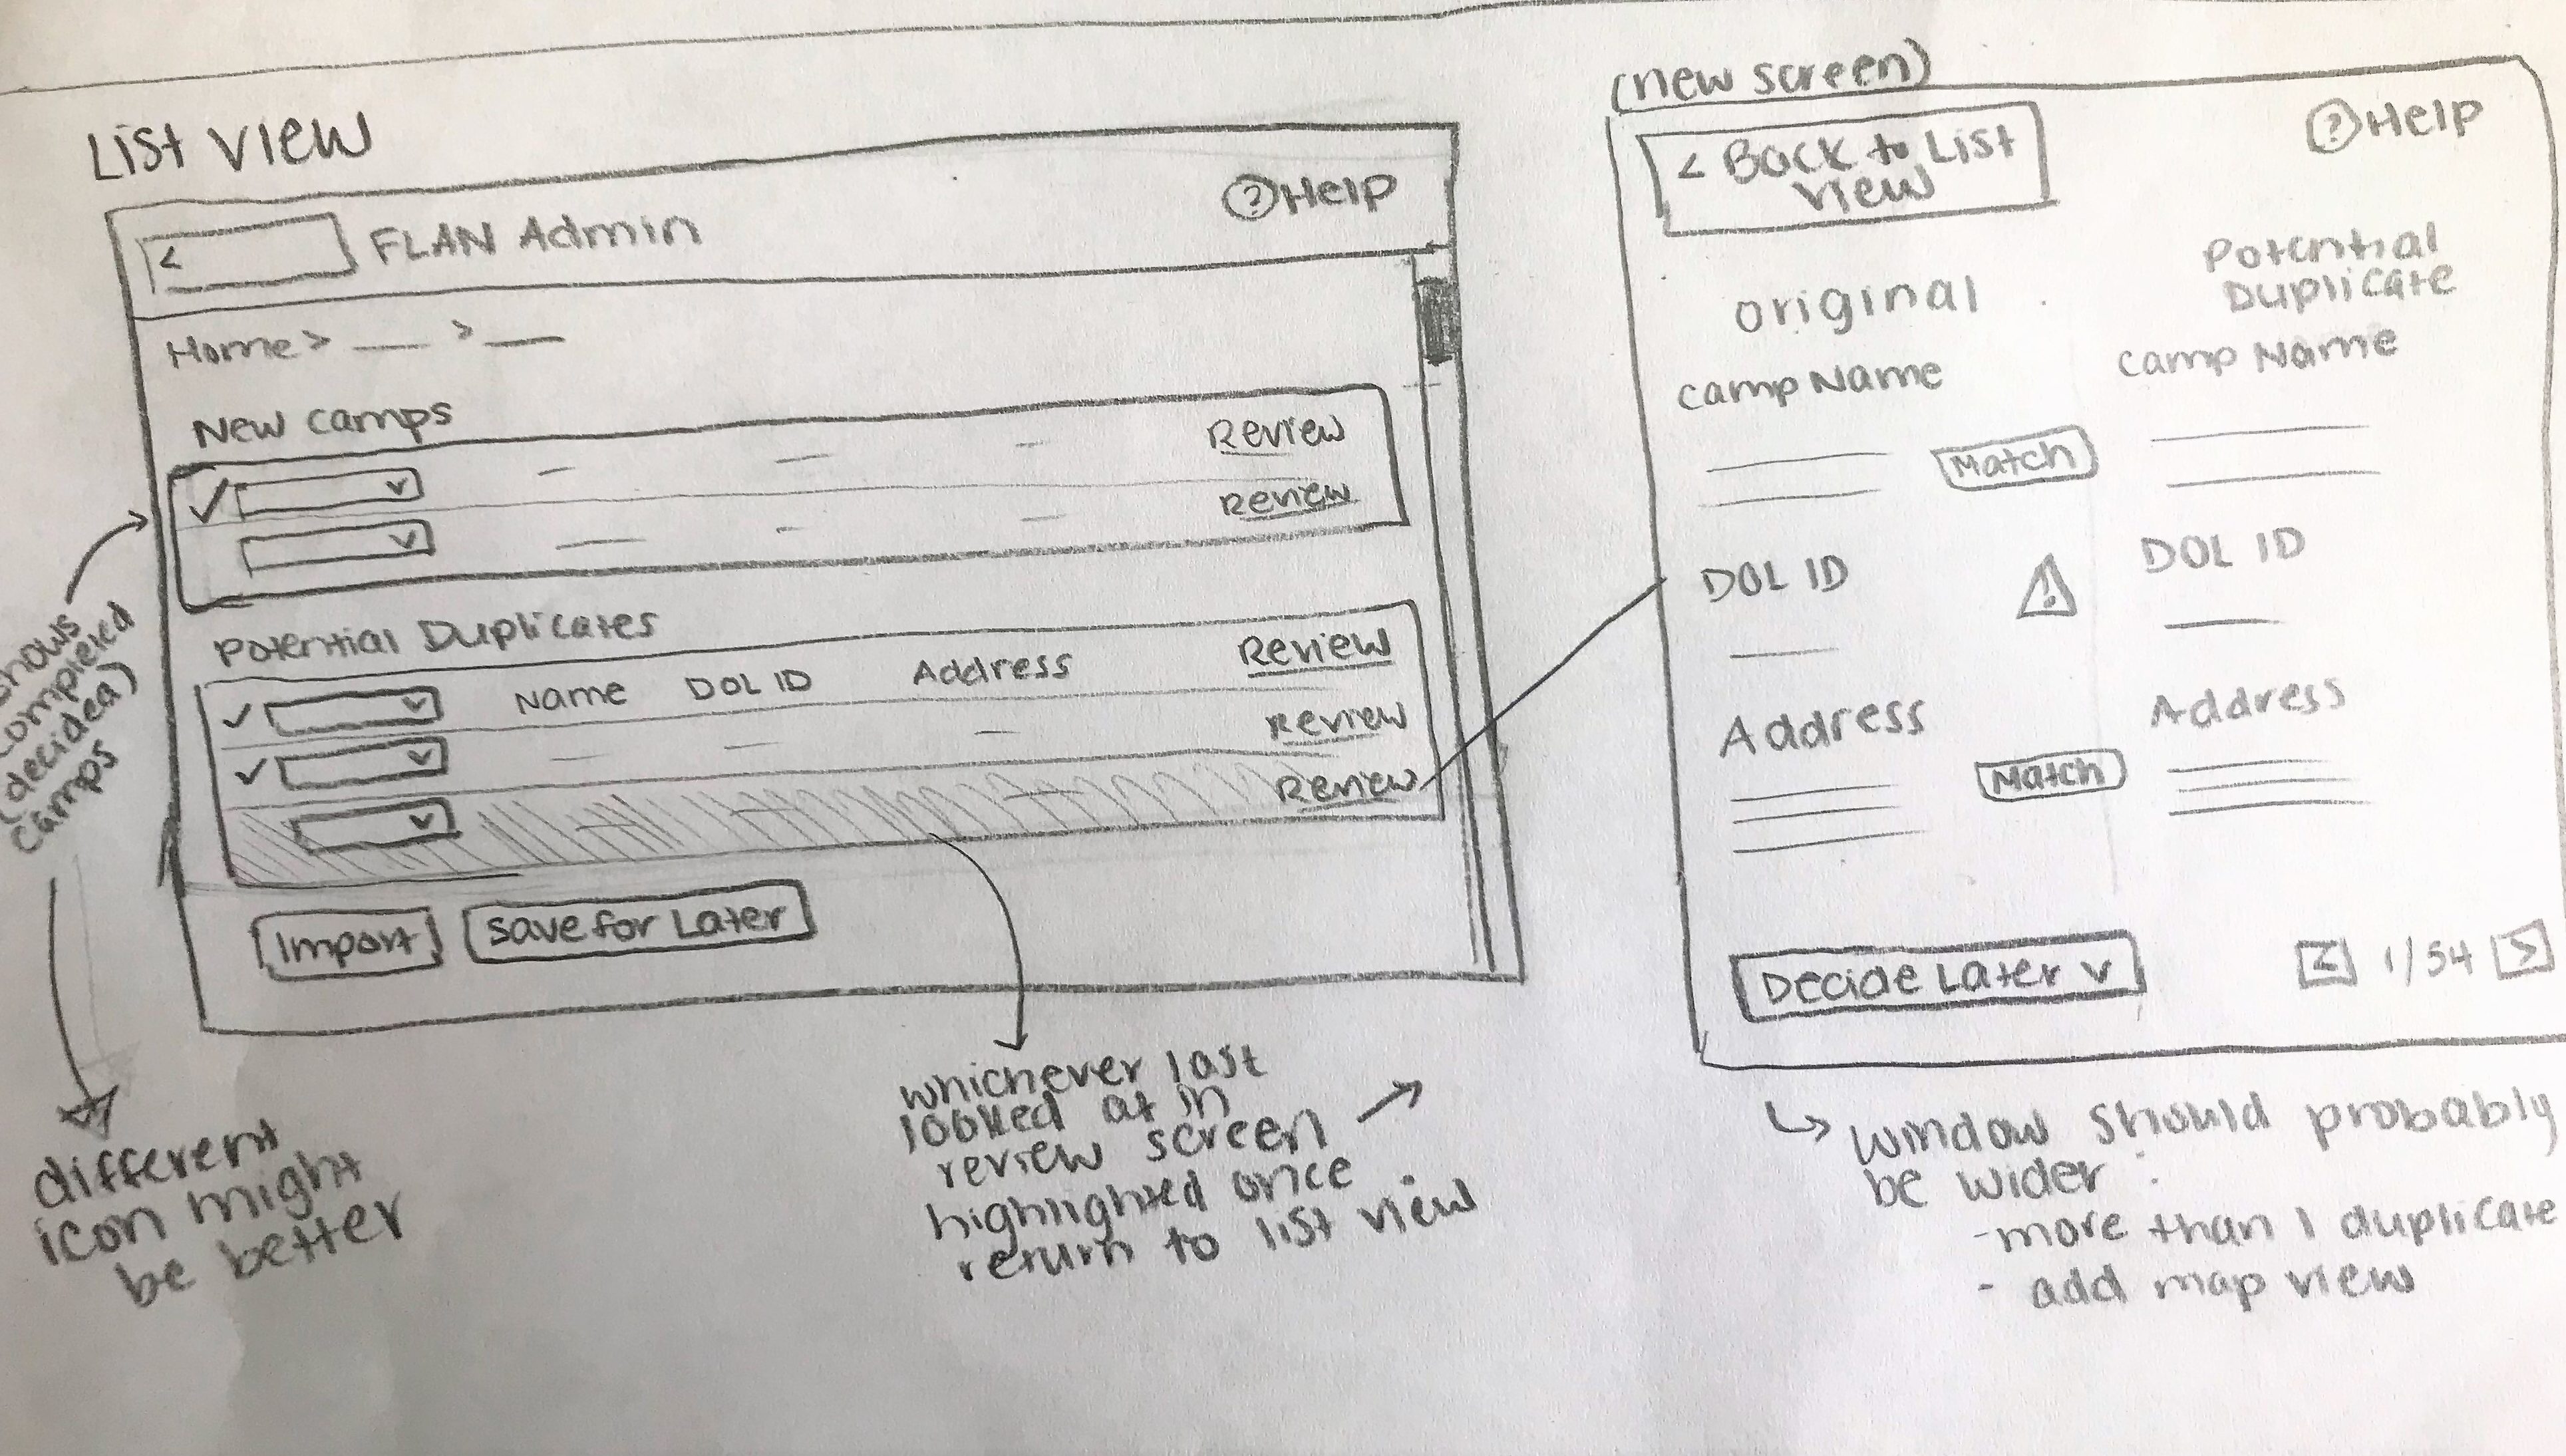 List View
< FLAN Admin
? Help
Home > __ > __
New camps
Review
Review
Potential Duplicates
Name DOL ID Address Review
Review
Review
Import Save for Later
completed
(decided)
camps
different
icon might
be better
whichever last
looked at in
review screen
highlighted once
return to list view
(new screen)
< Back to List
View
? Help
original
Potential
Duplicate
Camp Name Camp Name
Match
DOL ID ! DOL ID
Address Address
Match
Decide Later v < 1/54 >
window should probably
be wider:
- more than 1 duplicate
- add map view